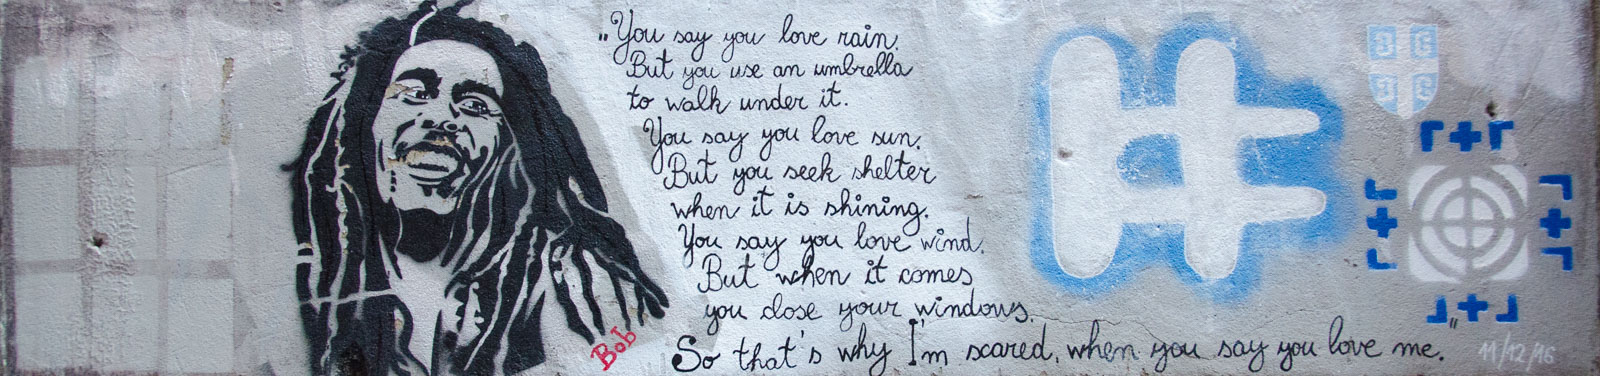 „You say you love rain.
But you use an umbrella
to walk under it.
You say you love sun.
But you seek shelter
when it is shining.
You say you love wind.
But when it comes
you close your windows.
So that's why I'm scared, when you say you love me."
Bob
11/12/16